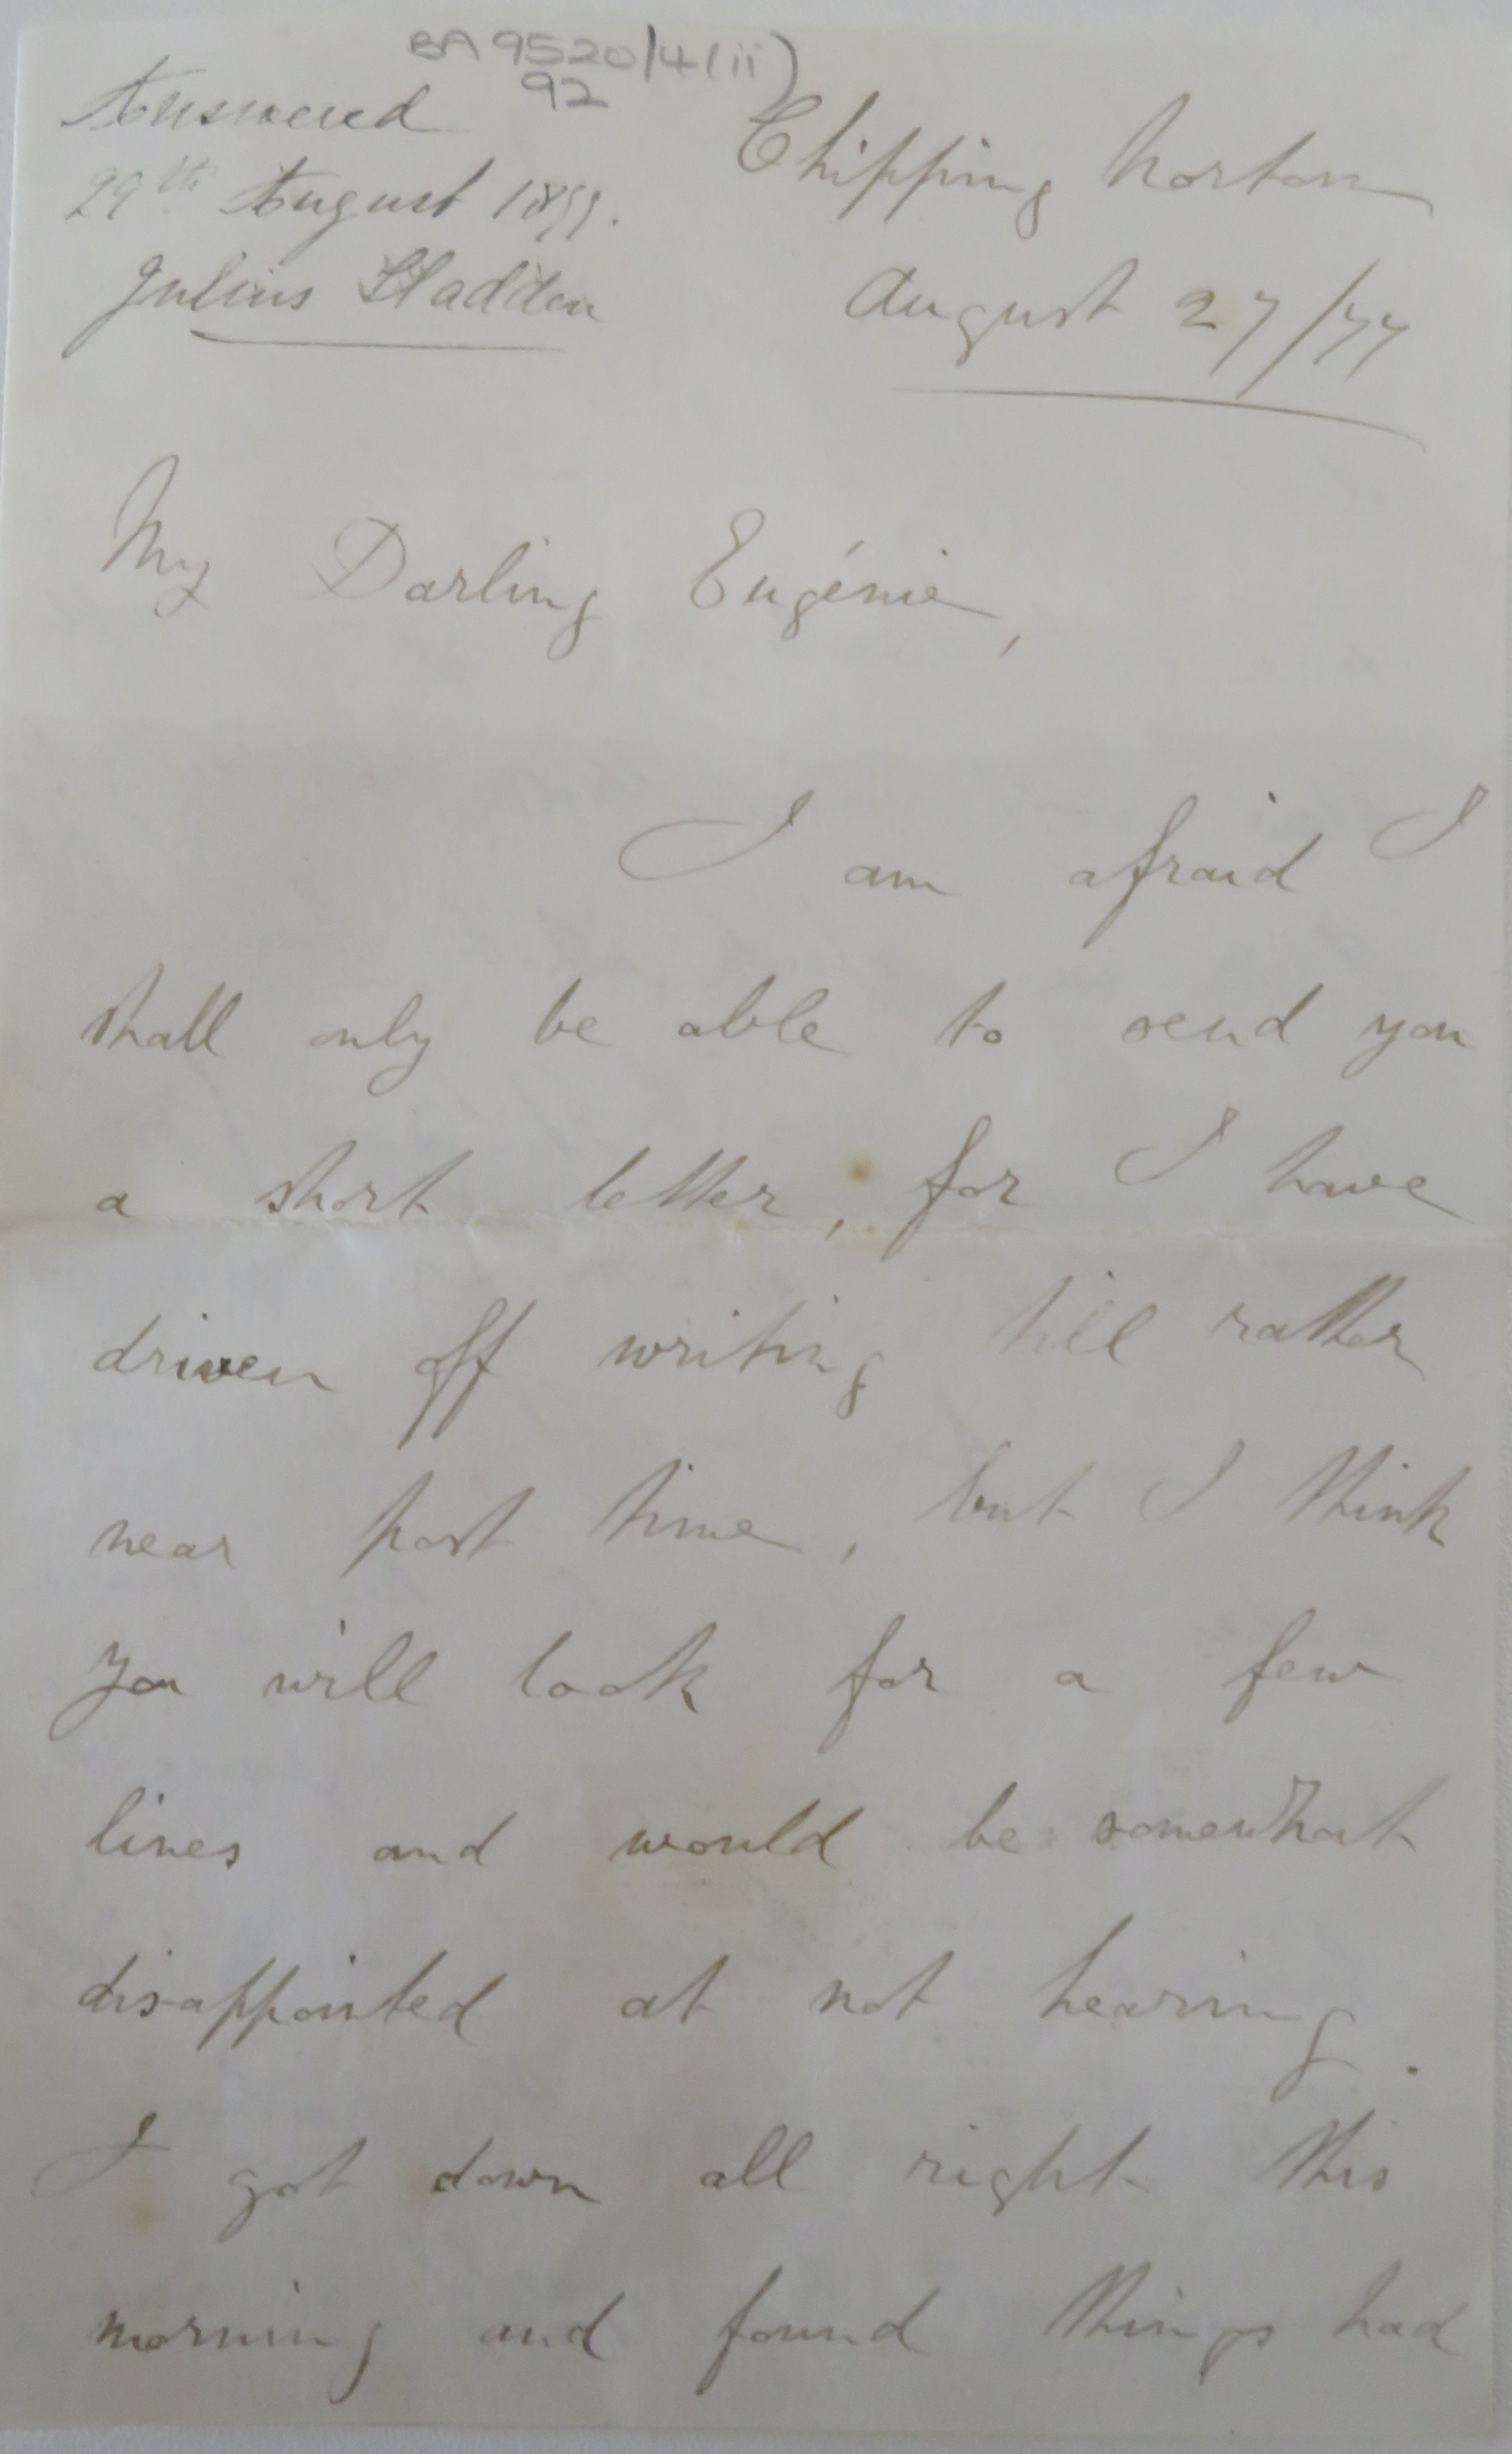 BA 9520/4(ii)
92
Answered
29th August 1877.
Julius Sladden
Chipping Norton
August 27/77
My Darling Eugénie,
I am afraid I
shall only be able to send you
a short letter, for I have
driven off writing till rather
near post time, but I think
you will look for a few
lines and would be somewhat
disappointed at not hearing.
I got down all right this
morning and found things had